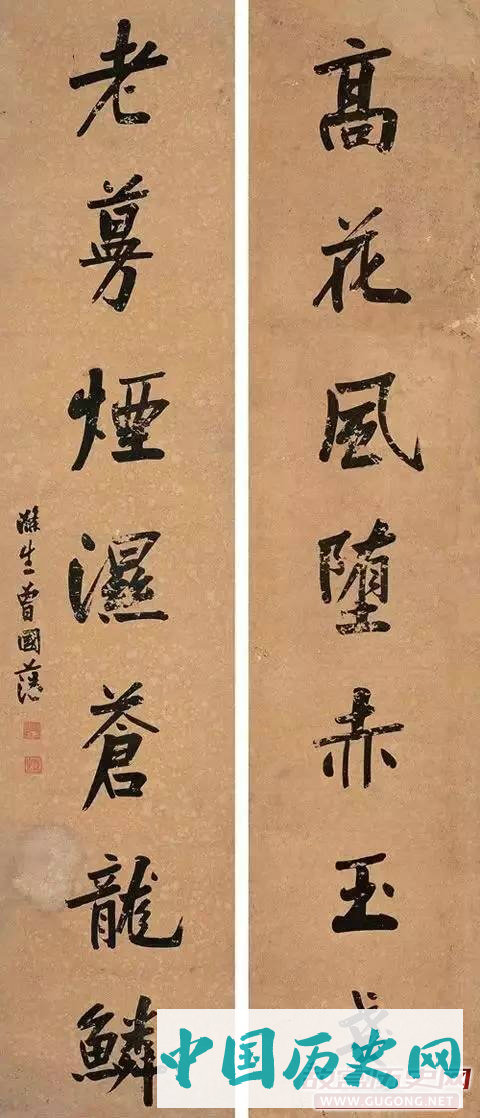 髙花風堕赤玉
老蔓煙濕蒼龍鱗
滌生曾國藩
中国历史网
WWW.GUGONG.NET